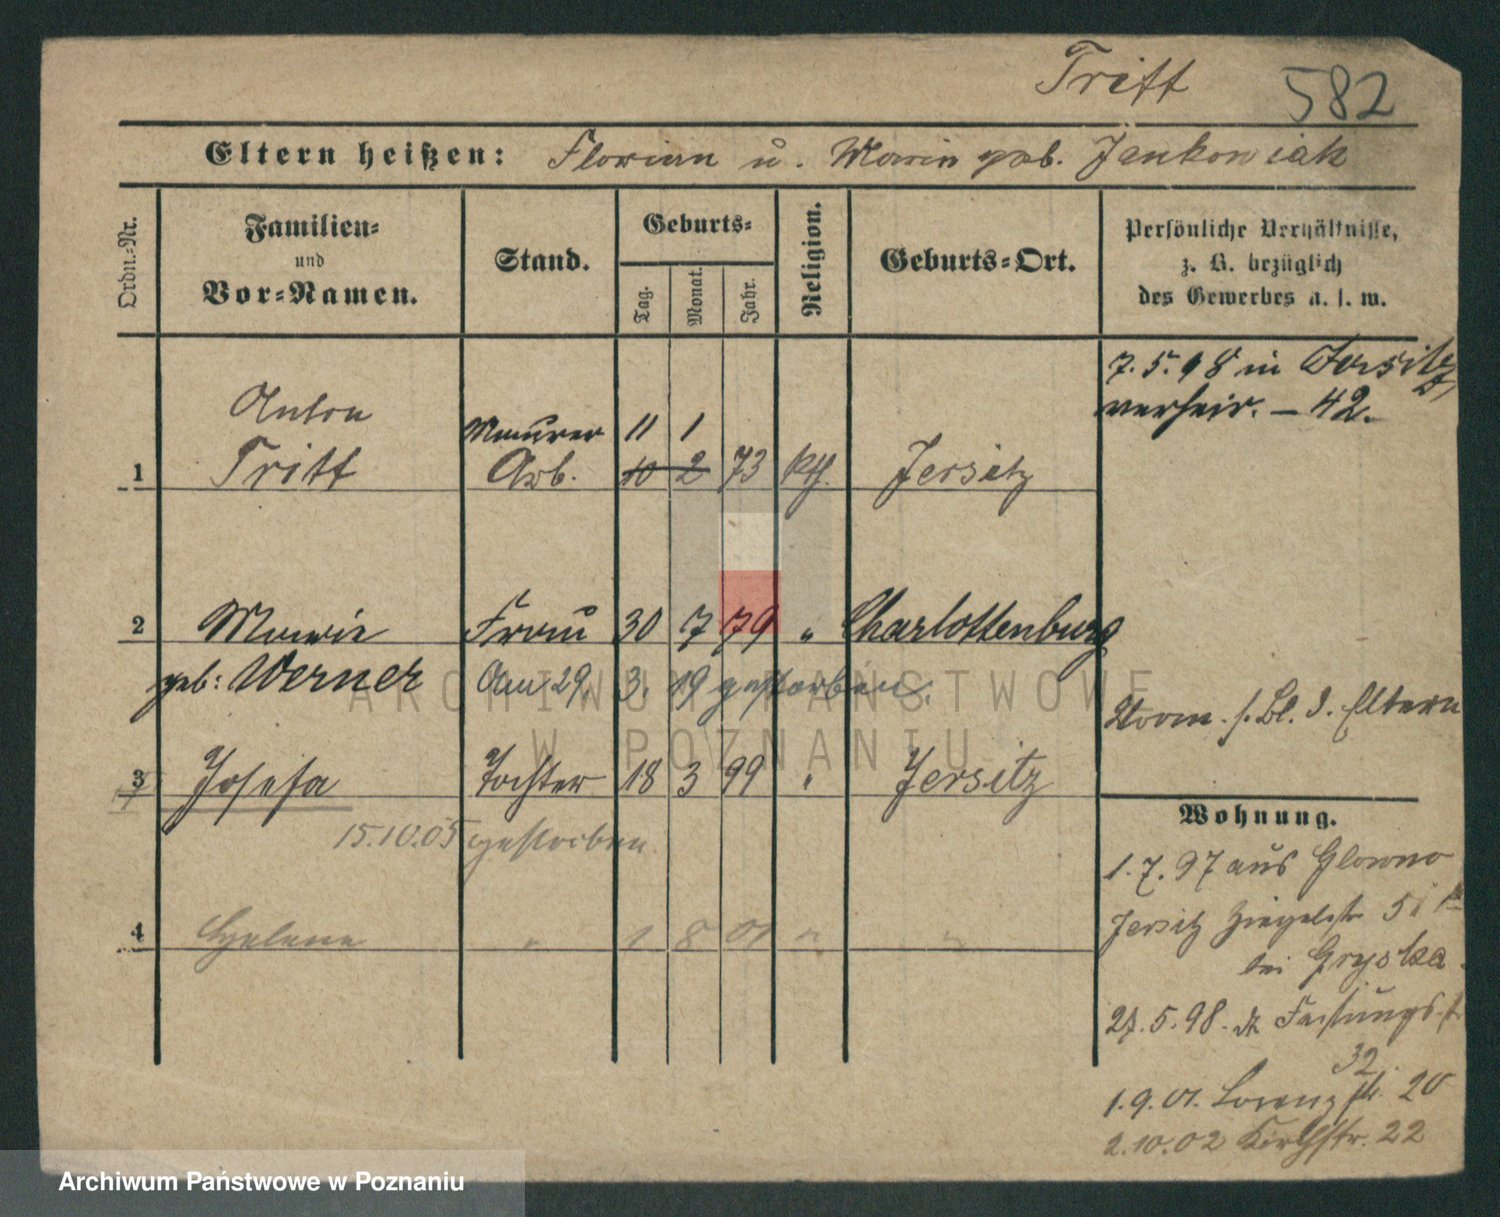 Tritt 582
Eltern heißen: Florian u. Marie geb. Jankowiak
Ordn.-Nr.
Familien-
und
Vor-Namen.
Stand.
Geburts-
Tag.
Monat.
Jahr.
Religion.
Geburts-Ort.
Persönliche Verhältnisse,
z. B. bezüglich
des Gewerbes u. s. w.
7.5.98 in Jersitz
verheir. – 42.
Anton
Maurer 11 1
1 Tritt Arb. 10 2 73 kth. Jersitz
2 Marie Frau 30 7 79 " Charlottenburg
geb: Werner Am 29. 3. 19 gestorben.
Norm. s. Bl. d. Eltern
3 Josefa Tochter 18 3 99 " Jersitz
15.10.05 gestorben.
4 Helene " 1 8 01 " "
Wohnung.
1.7.97 aus Glowno
Jersitz Ziegelstr 51
bei Gryska
27.5.98.
32.
1.9.01. Lorenzstr. 20
2.10.02 Kirchstr. 22
ARCHIWUM PAŃSTWOWE
W POZNANIU
Archiwum Państwowe w Poznaniu